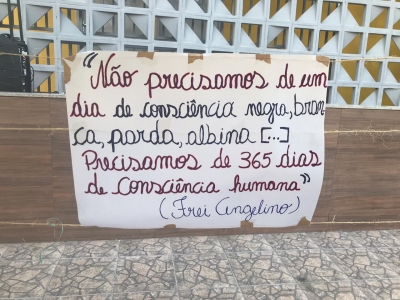 "Não precisamos de um
dia de consciência negra, bran
ca, parda, albina [...]
Precisamos de 365 dias
de consciência humana"
(Frei Angelino)